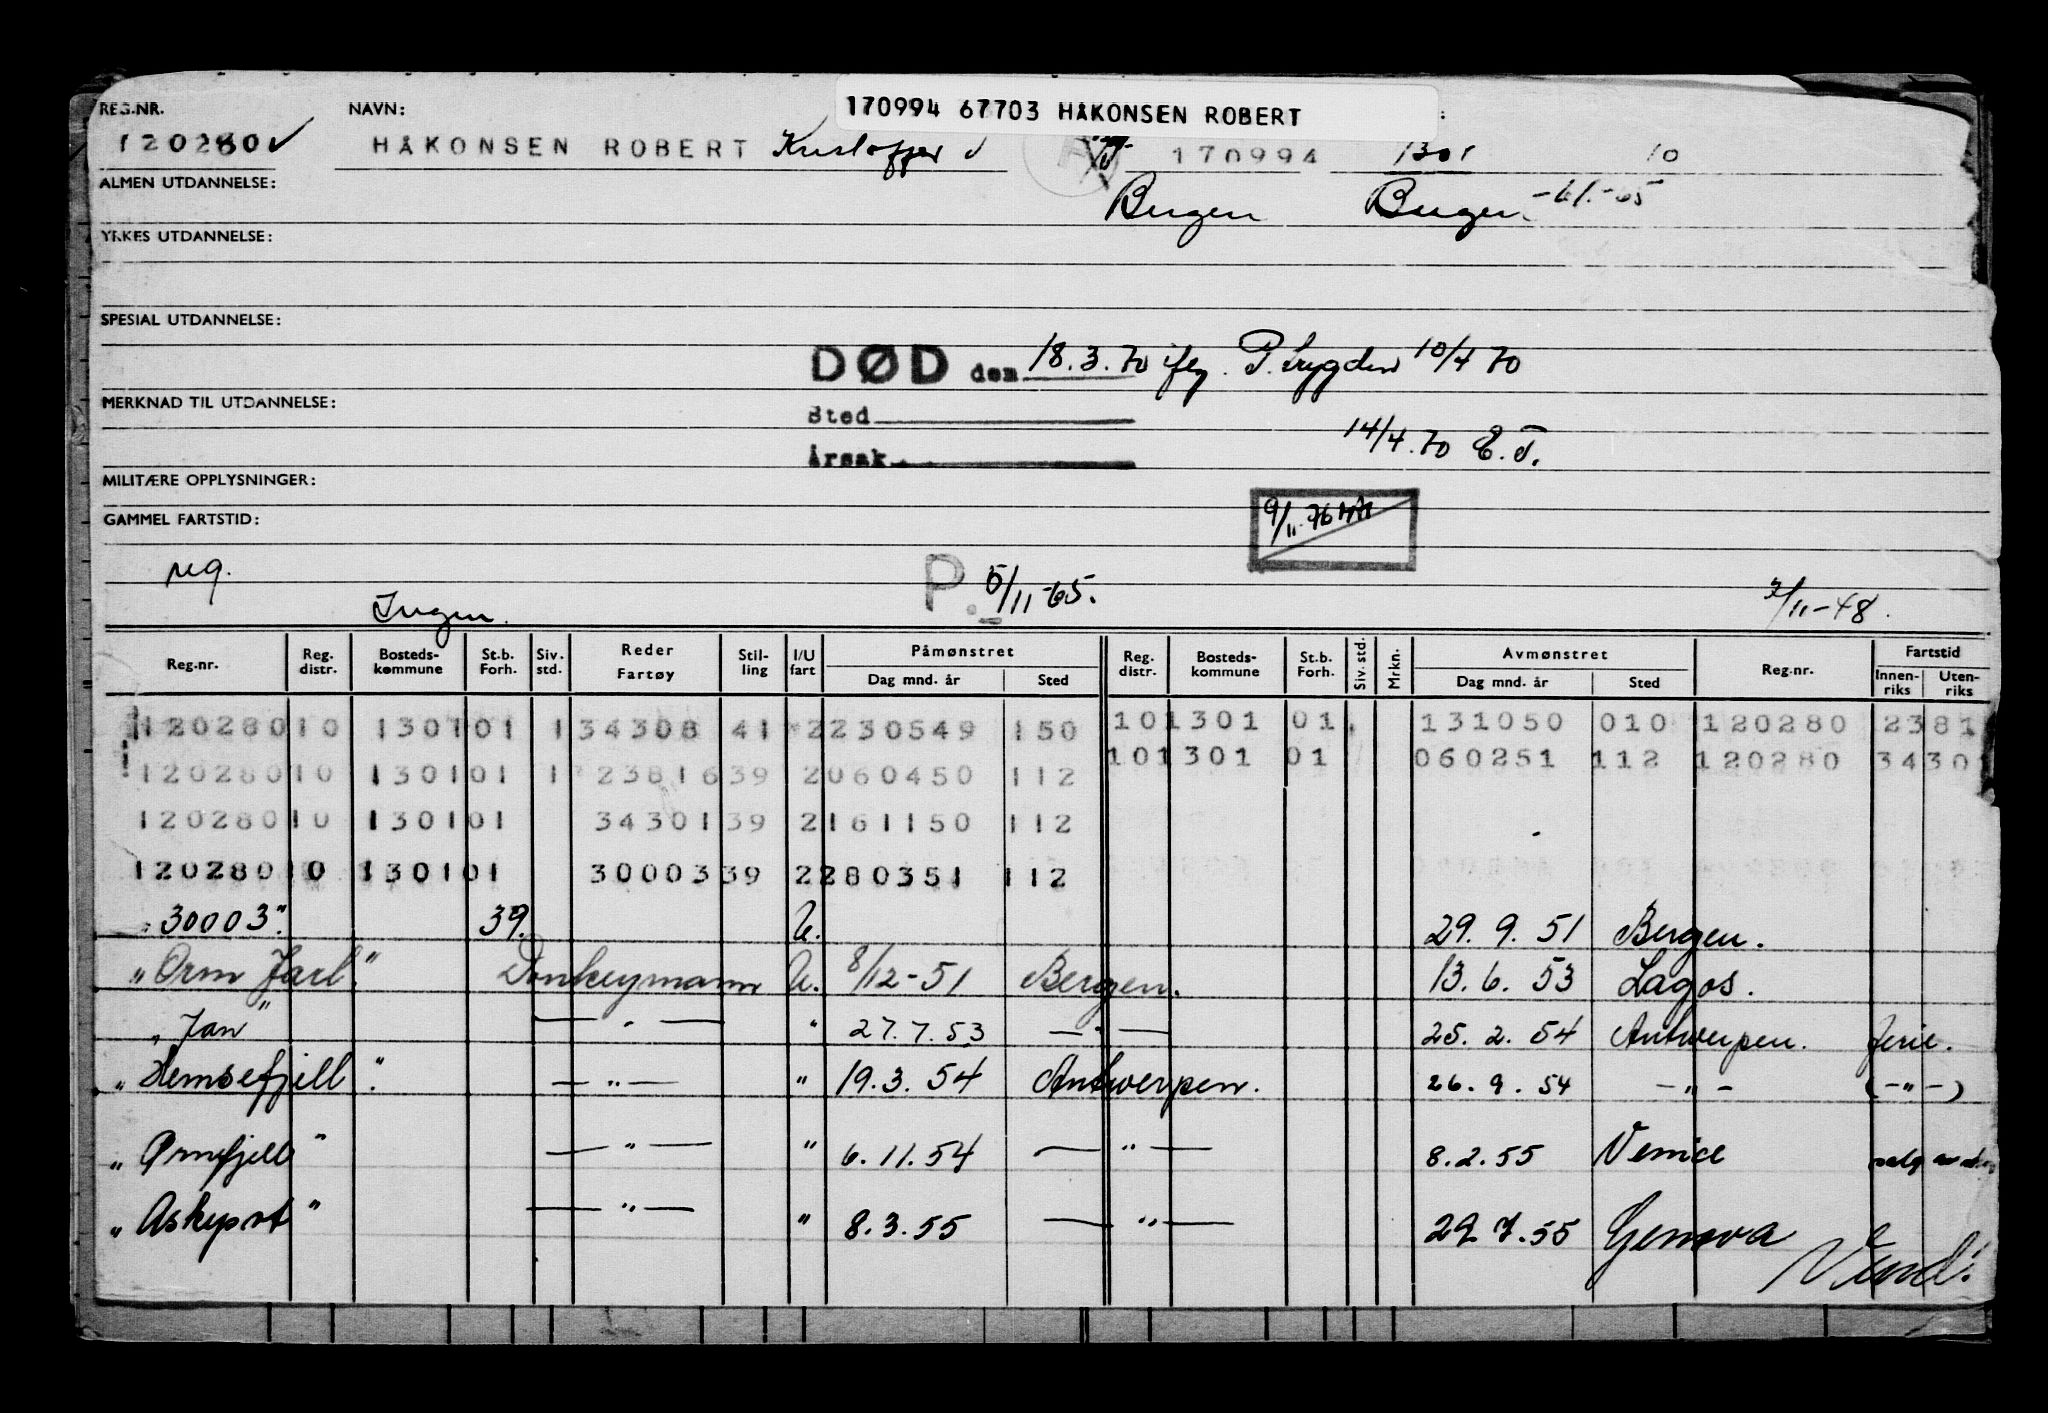 170994 67703 HÅKONSEN ROBERT
REG.NR. NAVN:
120280 ✓ HÅKONSEN ROBERT Kristoffer ✓ 170994 1301 10
ALMEN UTDANNELSE:
Bergen Bergen -61.-65
YRKES UTDANNELSE:
SPESIAL UTDANNELSE:
DØD den 18.3.70 iflg. P.trygden 10/4 70
MERKNAD TIL UTDANNELSE:
Sted
14/4.70 E.T.
Årsak
MILITÆRE OPPLYSNINGER:
GAMMEL FARTSTID:
9/11-76
reg.
P. 5/11-65.
Ingen. 2/11-48.
Reg.nr. Reg. distr. Bosteds-kommune St.b. Forh. Siv. std. Reder Fartøy Stil-ling I/U fart Påmønstret Dag mnd. år Sted Reg. distr. Bosteds-kommune St.b. Forh. Siv. std. Mrkn. Avmønstret Dag mnd. år Sted Reg.nr. Fartstid Innen-riks Uten-riks
120280 10 1301 01 1 34308 41 2 230549 150 10 1301 01 131050 010 120280 2381
120280 10 1301 01 1 23816 39 2 060450 112 10 1301 01 060251 112 120280 3430
120280 10 1301 01 34301 39 2 161150 112
120280 10 1301 01 30003 39 2 280351 112
"30003" 39. U. 29. 9. 51 Bergen.
"Orm Jarl" Donkeymann U. 8/12-51 Bergen. 13. 6. 53 Lagos.
"Jan" — " — " 27.7.53 — " — 25. 2. 54 Antwerpen. ferie.
"Hemsefjell" — " — " 19.3. 54 Antwerpen. 26. 9. 54 — " — (—"—)
"Ornefjell" — " — " 6. 11. 54 — " — 8. 2. 55 Venice salg av
"Askepot" — " — " 8. 3. 55 — " — 29 7. 55 Genova
Vend!